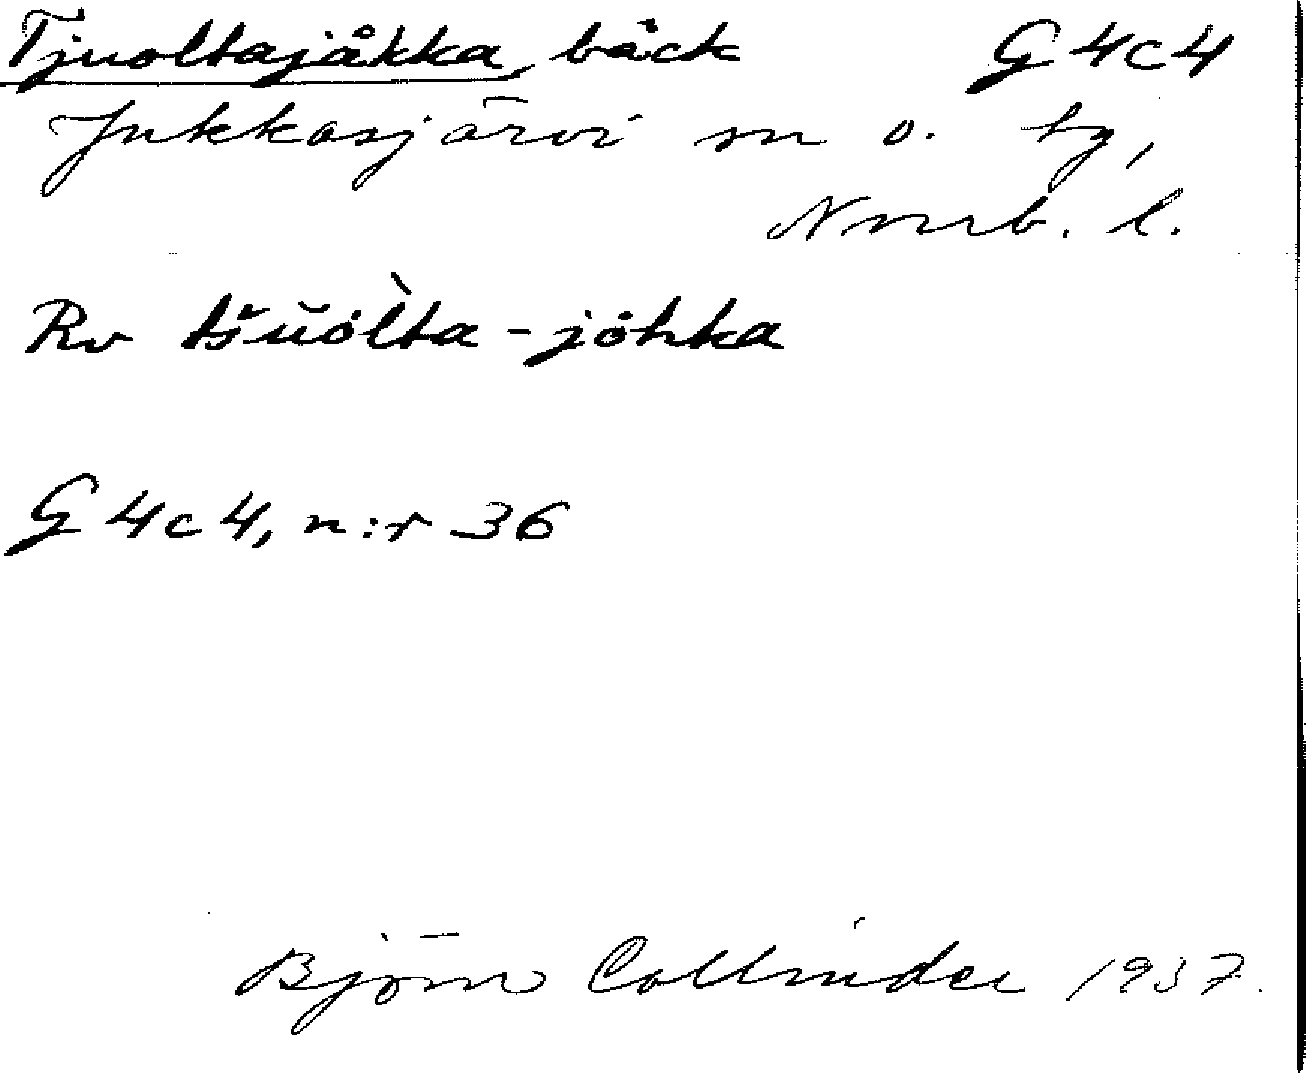 Tjuoltajåkka, bäck G 4c4
Jukkasjärvi sn o. tg,
Norrb. l.
Rv tšŭòlta-jȯhka
G 4c4, n:r 36
Björn Collinder 1937.